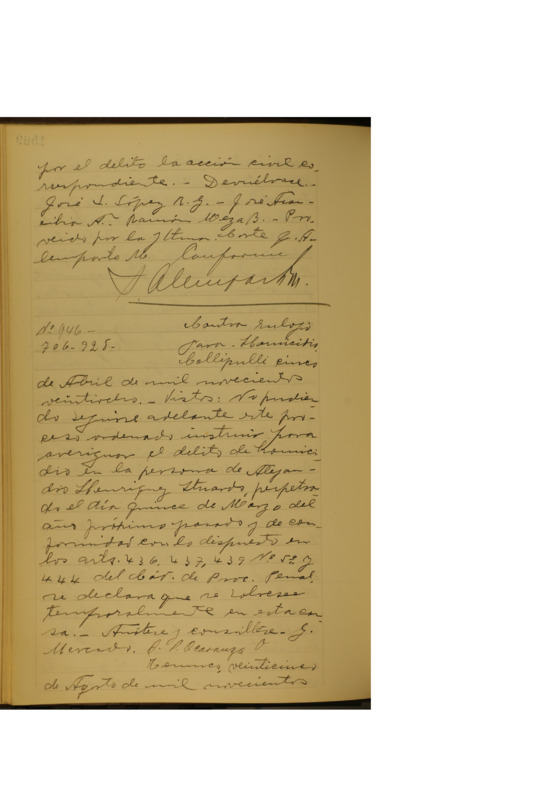 por el delito la acción civil co-
rrespondiente.- Devuélvase.-
José L. López R. G. - José Fran-
cisco A.- Ramón Meza B. - Pro-
veido por la Iltma. Corte G. A-
lemparte M. Conforme
Alemparte M.
Nº 946.-
706-925-
Contra Eulogio
Jara. Homicidio.
Collipulli cinco
de Abril de mil novecientos
veintiocho.- Vistos: No pudien-
do seguirse adelante este pro-
ceso ordenado instruir para
averiguar el delito de homici-
dio en la persona de Alejan-
dro Henríquez Stuardo, perpetra-
do el día quince de Marzo del
año próximo pasado y de con-
formidad con lo dispuesto en
los arts. 436, 437, 439 Nº 5º y
444 del Cód. de Proc. Penal,
se declara que se sobresee
temporalmente en esta cau-
sa.- Anótese y consúltese.- G.
Mercado. P. P. Ocaranza
Temuco, veinticinco
de Agosto de mil novecientos